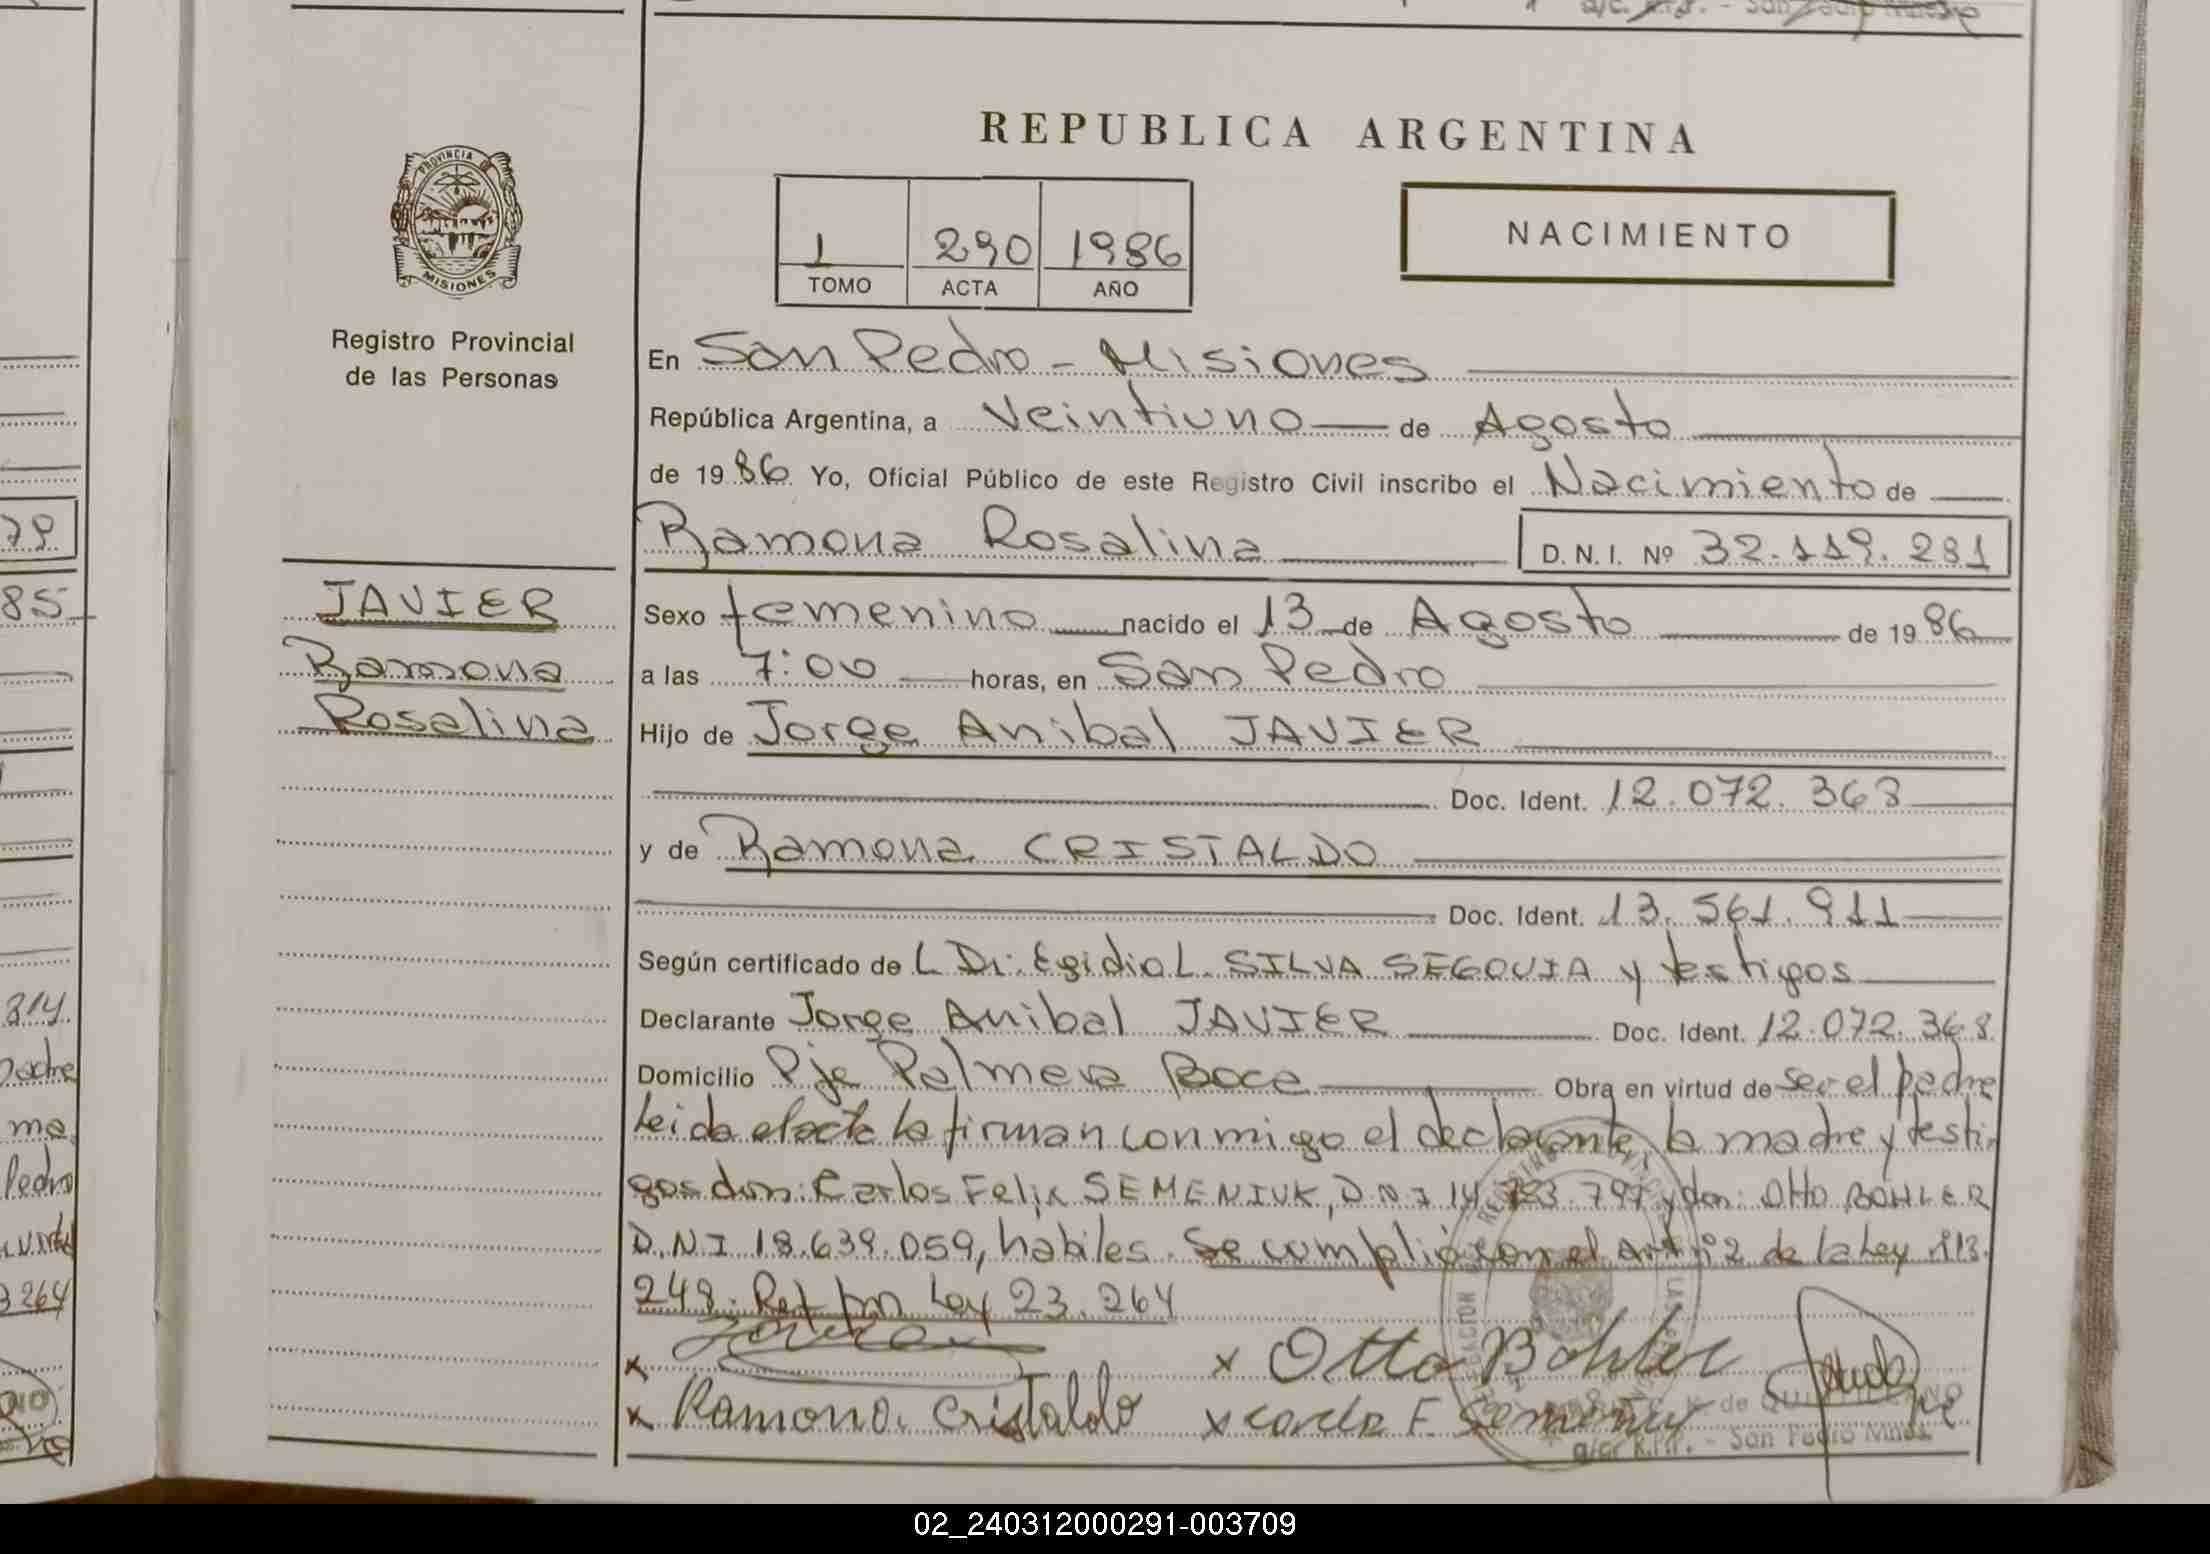 REPUBLICA ARGENTINA
PROVINCIA DE
MISIONES
Registro Provincial
de las Personas
1 290 1986
TOMO ACTA AÑO
NACIMIENTO
En San Pedro - Misiones
República Argentina, a Veintiuno de Agosto
de 1986 Yo, Oficial Público de este Registro Civil inscribo el Nacimiento de
Ramona Rosalina D. N. I. Nº 32.119.281
JAVIER
Ramona
Rosalina
Sexo femenino nacido el 13 de Agosto de 1986
a las 7:00 horas, en San Pedro
Hijo de Jorge Anibal JAVIER
Doc. Ident. 12.072.368
y de Ramona CRISTALDO
Doc. Ident. 13.561.911
Según certificado de L Dr. Egidio L. SILVA SEGOVIA y testigos
Declarante Jorge Anibal JAVIER Doc. Ident. 12.072.368
Domicilio Pje Palmera Boca Obra en virtud de ser el padre
Leida el acta la firman conmigo el declarante la madre y testi-
gos don: Carlos Felix SEMENIUK, D.N.I 14.723.797 y don: Otto BOHLER
D.N.I 18.639.059, habiles. Se complio con el Art nº 2 de la Ley 113.
248. Ref por Ley 23.264
x x Otto Bohler
x Ramona Cristaldo x Carlos F. Semeniuk
de
a/c R.P.P. - San Pedro Mnes.
79
85
814.
padre
me
Pedro
virtud
3264
02_240312000291-003709